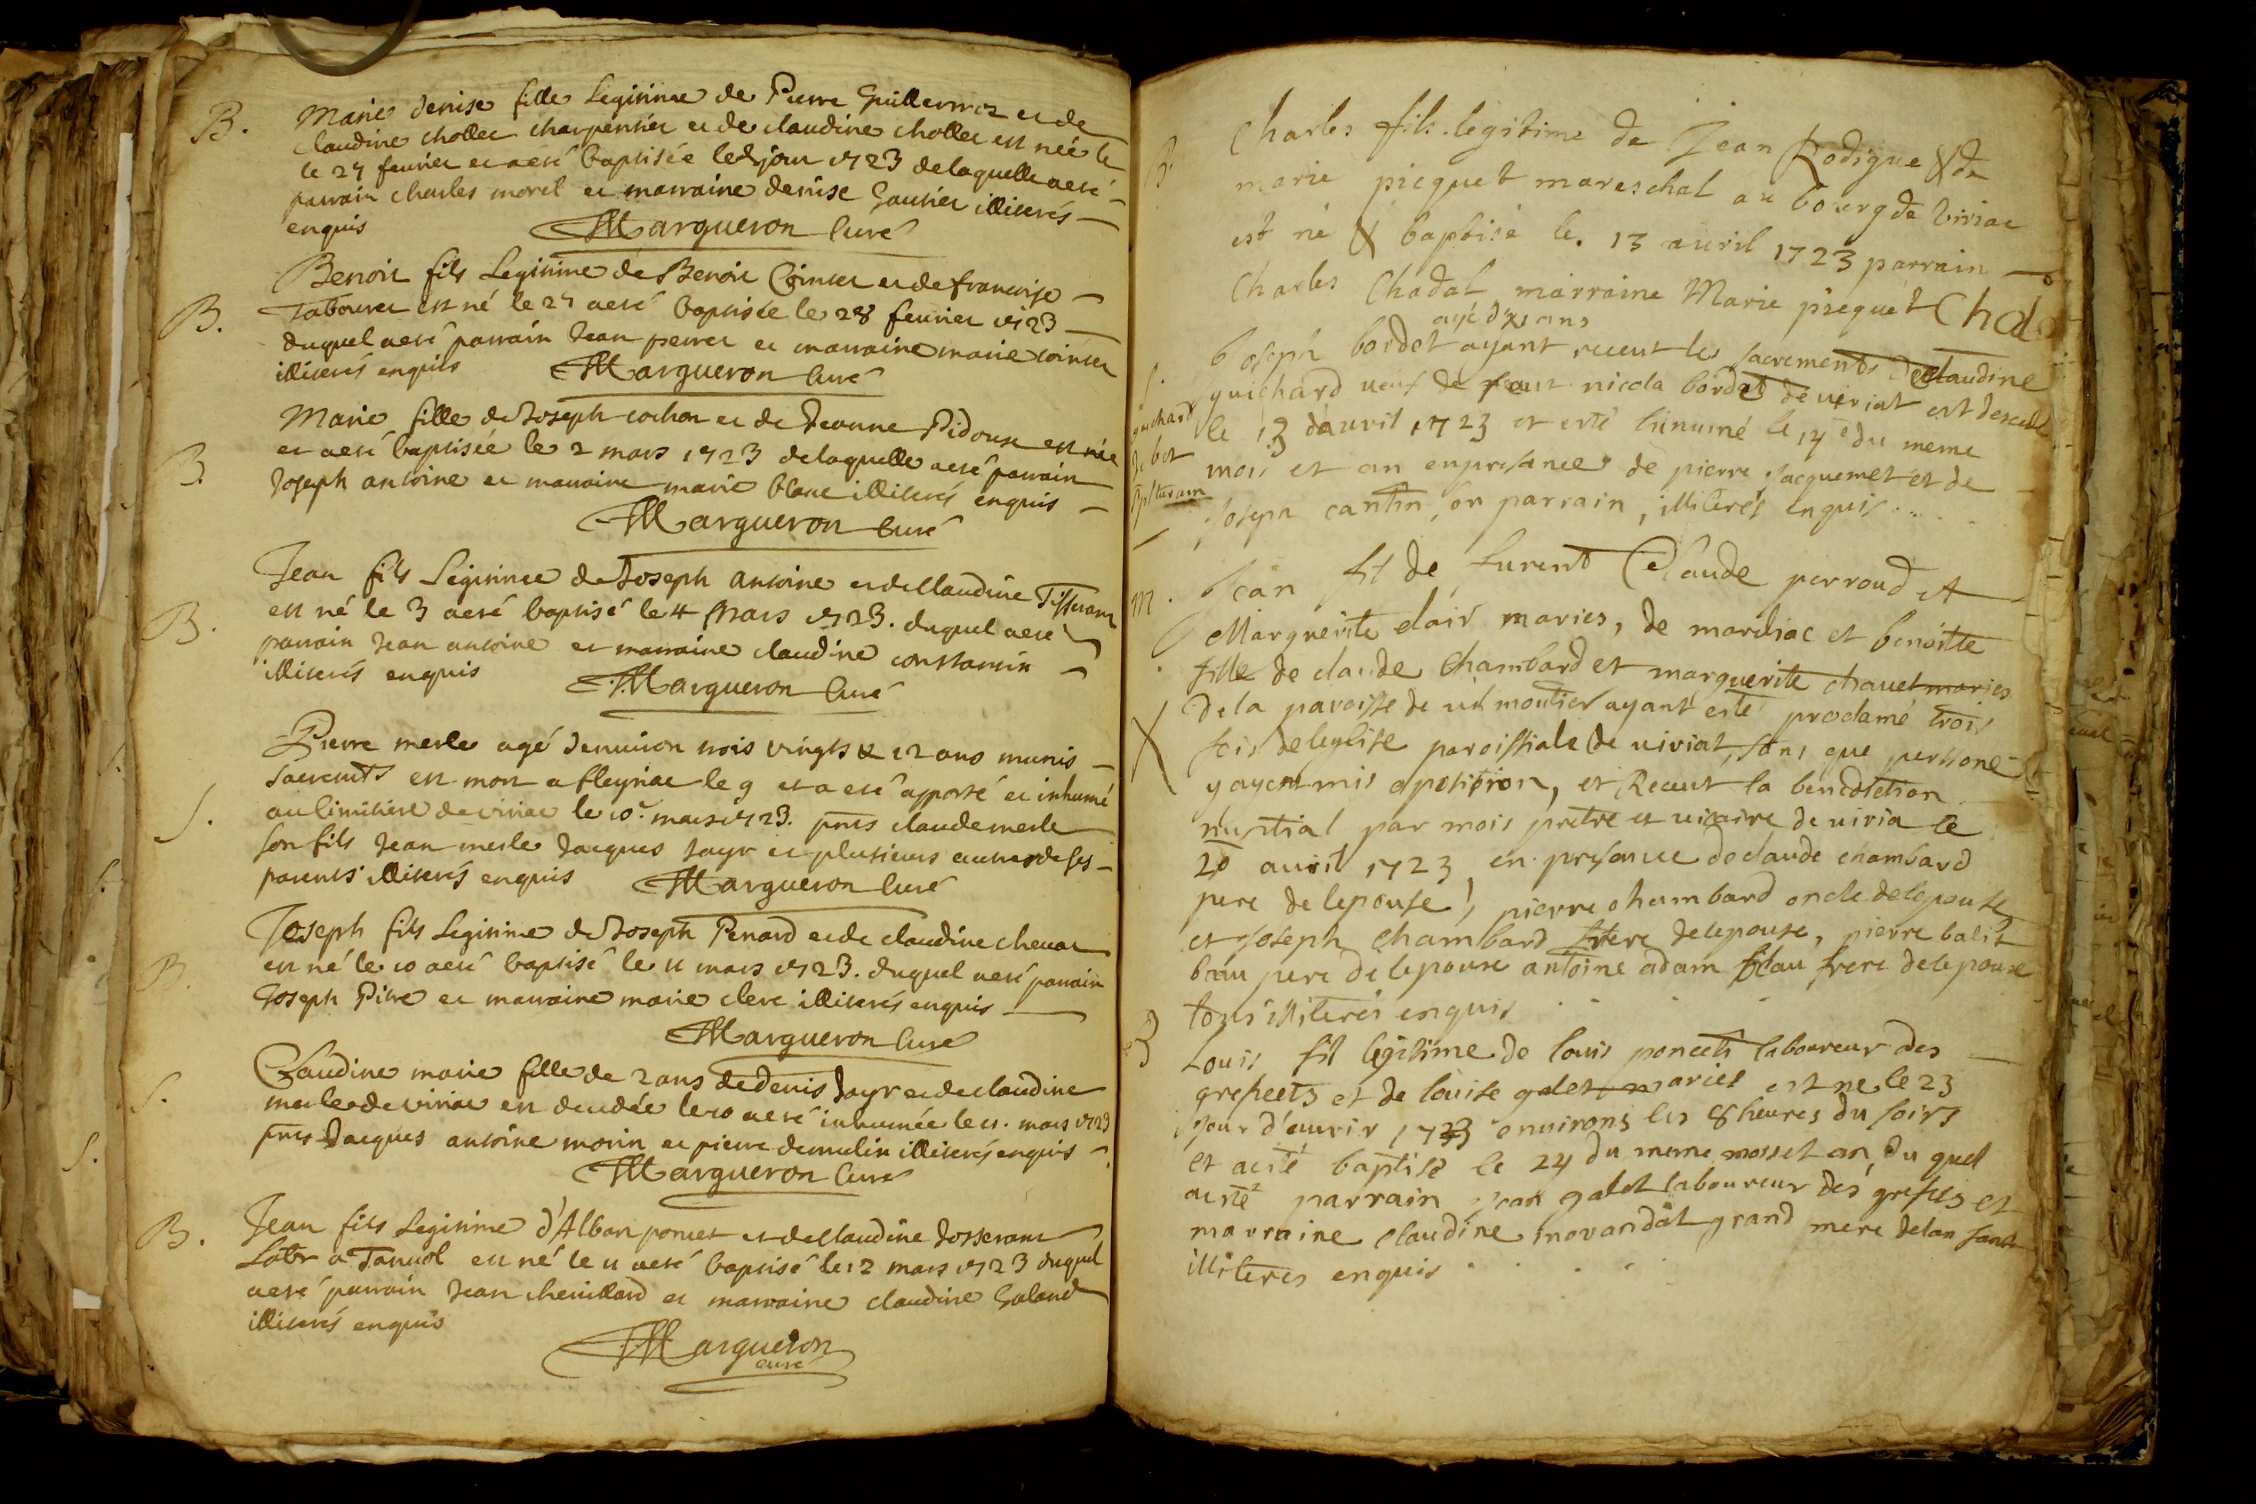 B. Marie denise fille Legitime de Pierre Guillermoz et de
claudine chollet charpentier et de claudine chollet est née le
le 27 fevrier et a eté baptisée led jour 1723 delaquelle a eté
parrain charles morel et marraine denise Gautier illiterés
enquis Margueron Curé
Benoit fils Legitime de Benoit Cointet et de francoise
B. Tabouret est né le 27 a eté baptisée le 28 feurier 1723
duquel a eté parrain Jean perret et marraine marie cointet
illiterés enquis Margueron Curé
Marie fille de Joseph cochon et de Jeanne Pidoux est née
B. et a eté baptisée le 2 mars 1723 delaquelle a eté parrain
Joseph antoine et marraine marie blanc illiterés enquis
Margueron Curé
Jean fils Legitime de Joseph antoine et de Claudine Tisserant
B. est né le 3 a eté baptisé le 4 Mars 1723. duquel a eté
parrain Jean antoine et marraine claudine constantin
illiterés enquis Margueron Curé
Pierre merle agé denuiron trois vingts & 12 ans munis
S. sacremts est mort a fleyriac le 9 et a eté apporté et inhumé
au Cimitiere de viriac le 10e mars 1723. pnts claude merle
son fils Jean merle Jacques Jayr et plusieurs autres de ses
parents illiterés enquis Margueron Curé
Joseph fils Legitime de Joseph Penard et de claudine cheuat
B. est né le 10 a eté baptisé le 11 mars 1723. duquel a eté parrain
Joseph Pitre et marraine marie clerc illiterés enquis
Margueron Curé
Claudine marie fille de 2 ans de denis Jayr et de claudine
S. merle de viriac est decedée le 10 a eté inhumée le 11. mars 1723
pnts Jacques antoine morin et pierre demulin illiterés enquis
Margueron Curé
B. Jean fils Legitime d'Alban poncet et de Claudine Josserant
Labr a Tanuol est né le 11 a eté baptisé le 12 mars 1723 duquel
a eté parrain Jean cheuillard et marraine claudine Galand
illiterés enquis
Margueron
curé
B. Charles fils legitime de Jean Rodigue & de
marie picquet mareschal au bourg de Viriac
est né & baptisé le. 13 auril 1723 parrain
Charles Chadal marraine Marie picquet Chada
agé d ans
S. Joseph bordet ayant receut les sacrements de claudine
guichard ueuf de nicola bordet de uiriat est descedé
le 13 d'auril 1723 et esté hinumé le 14e du meme
mois et an enpresance de pierre Jacquemet et de
Joseph cantin, on parrain, illiterés enquis
M. Jean fil de Lurent Claude perroud et
Marguerite clair maries, de mardiac et benoitte
fille de claude Chambard et marguerite chauet maries
X de la paroisse de uil moutier ayant esté proclamé trois
fois de leglise paroissiale de uiriat, sans que personé
y ayent mis oposition, et Receut la benedetion
nuptial par mois pretre et uicaire de uiria le
20 auril 1723 en presance de claude chambard
pere de lepouse, pierre chambard oncle delepouse
et joseph chambard frere delepouse, pierre balit
beau pere de lepouse antoine adam beau frere delepouse
tous illiterés enquis
B Louis fil legitime de louis poncet laboureur des
grefeets et de louise galet maries est ne le 23
jour d'auvrir 1723 enuirons les 8 heures du soirs
et a esté baptisé le 24 du meme mois et an, du quel
a esté parrain jean galet laboureur des grefets et
marraine claudine morandat grand mere delan fant
illiteres enquis